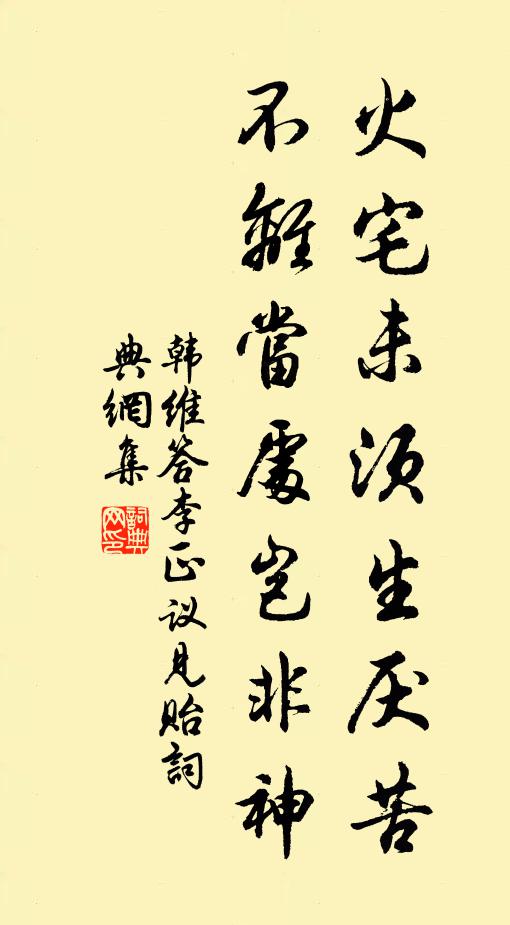 火宅未须生厌苦
不離當處岂非神
韩维答李正议見贻詞
典網集
詞典
网印